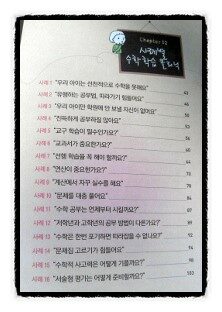 Chapter 02
사례별
수학 학습 클리닉
사례 1 "우리 아이는 선천적으로 수학을 못해요"
사례 2 "유행하는 공부법, 따라가기 힘들어요" 43
사례 3 "우리 아이만 학원에 안 보낼 자신이 없어요"
사례 4 "진득하게 공부하질 않아요"
사례 5 "교구 학습이 필수인가요?"
사례 6 "교과서가 중요한가요?"
사례 7 "선행 학습을 꼭 해야 할까요?"
사례 8 "연산이 중요한가요?"
사례 9 "계산에서 자꾸 실수를 해요"
사례 10 "문제를 대충 풀어요"
사례 11 "수학 공부는 언제부터 시킬까요?"
사례 12 "저학년과 고학년의 공부 방법이 다른가요?"
사례 13 "수학은 한번 포기하면 따라잡을 수 없나요?"
사례 14 "문제집 고르기가 힘들어요"
사례 15 "수학적 사고력은 어떻게 기를까요?"
사례 16 "서술형 평가는 어떻게 준비할까요?"